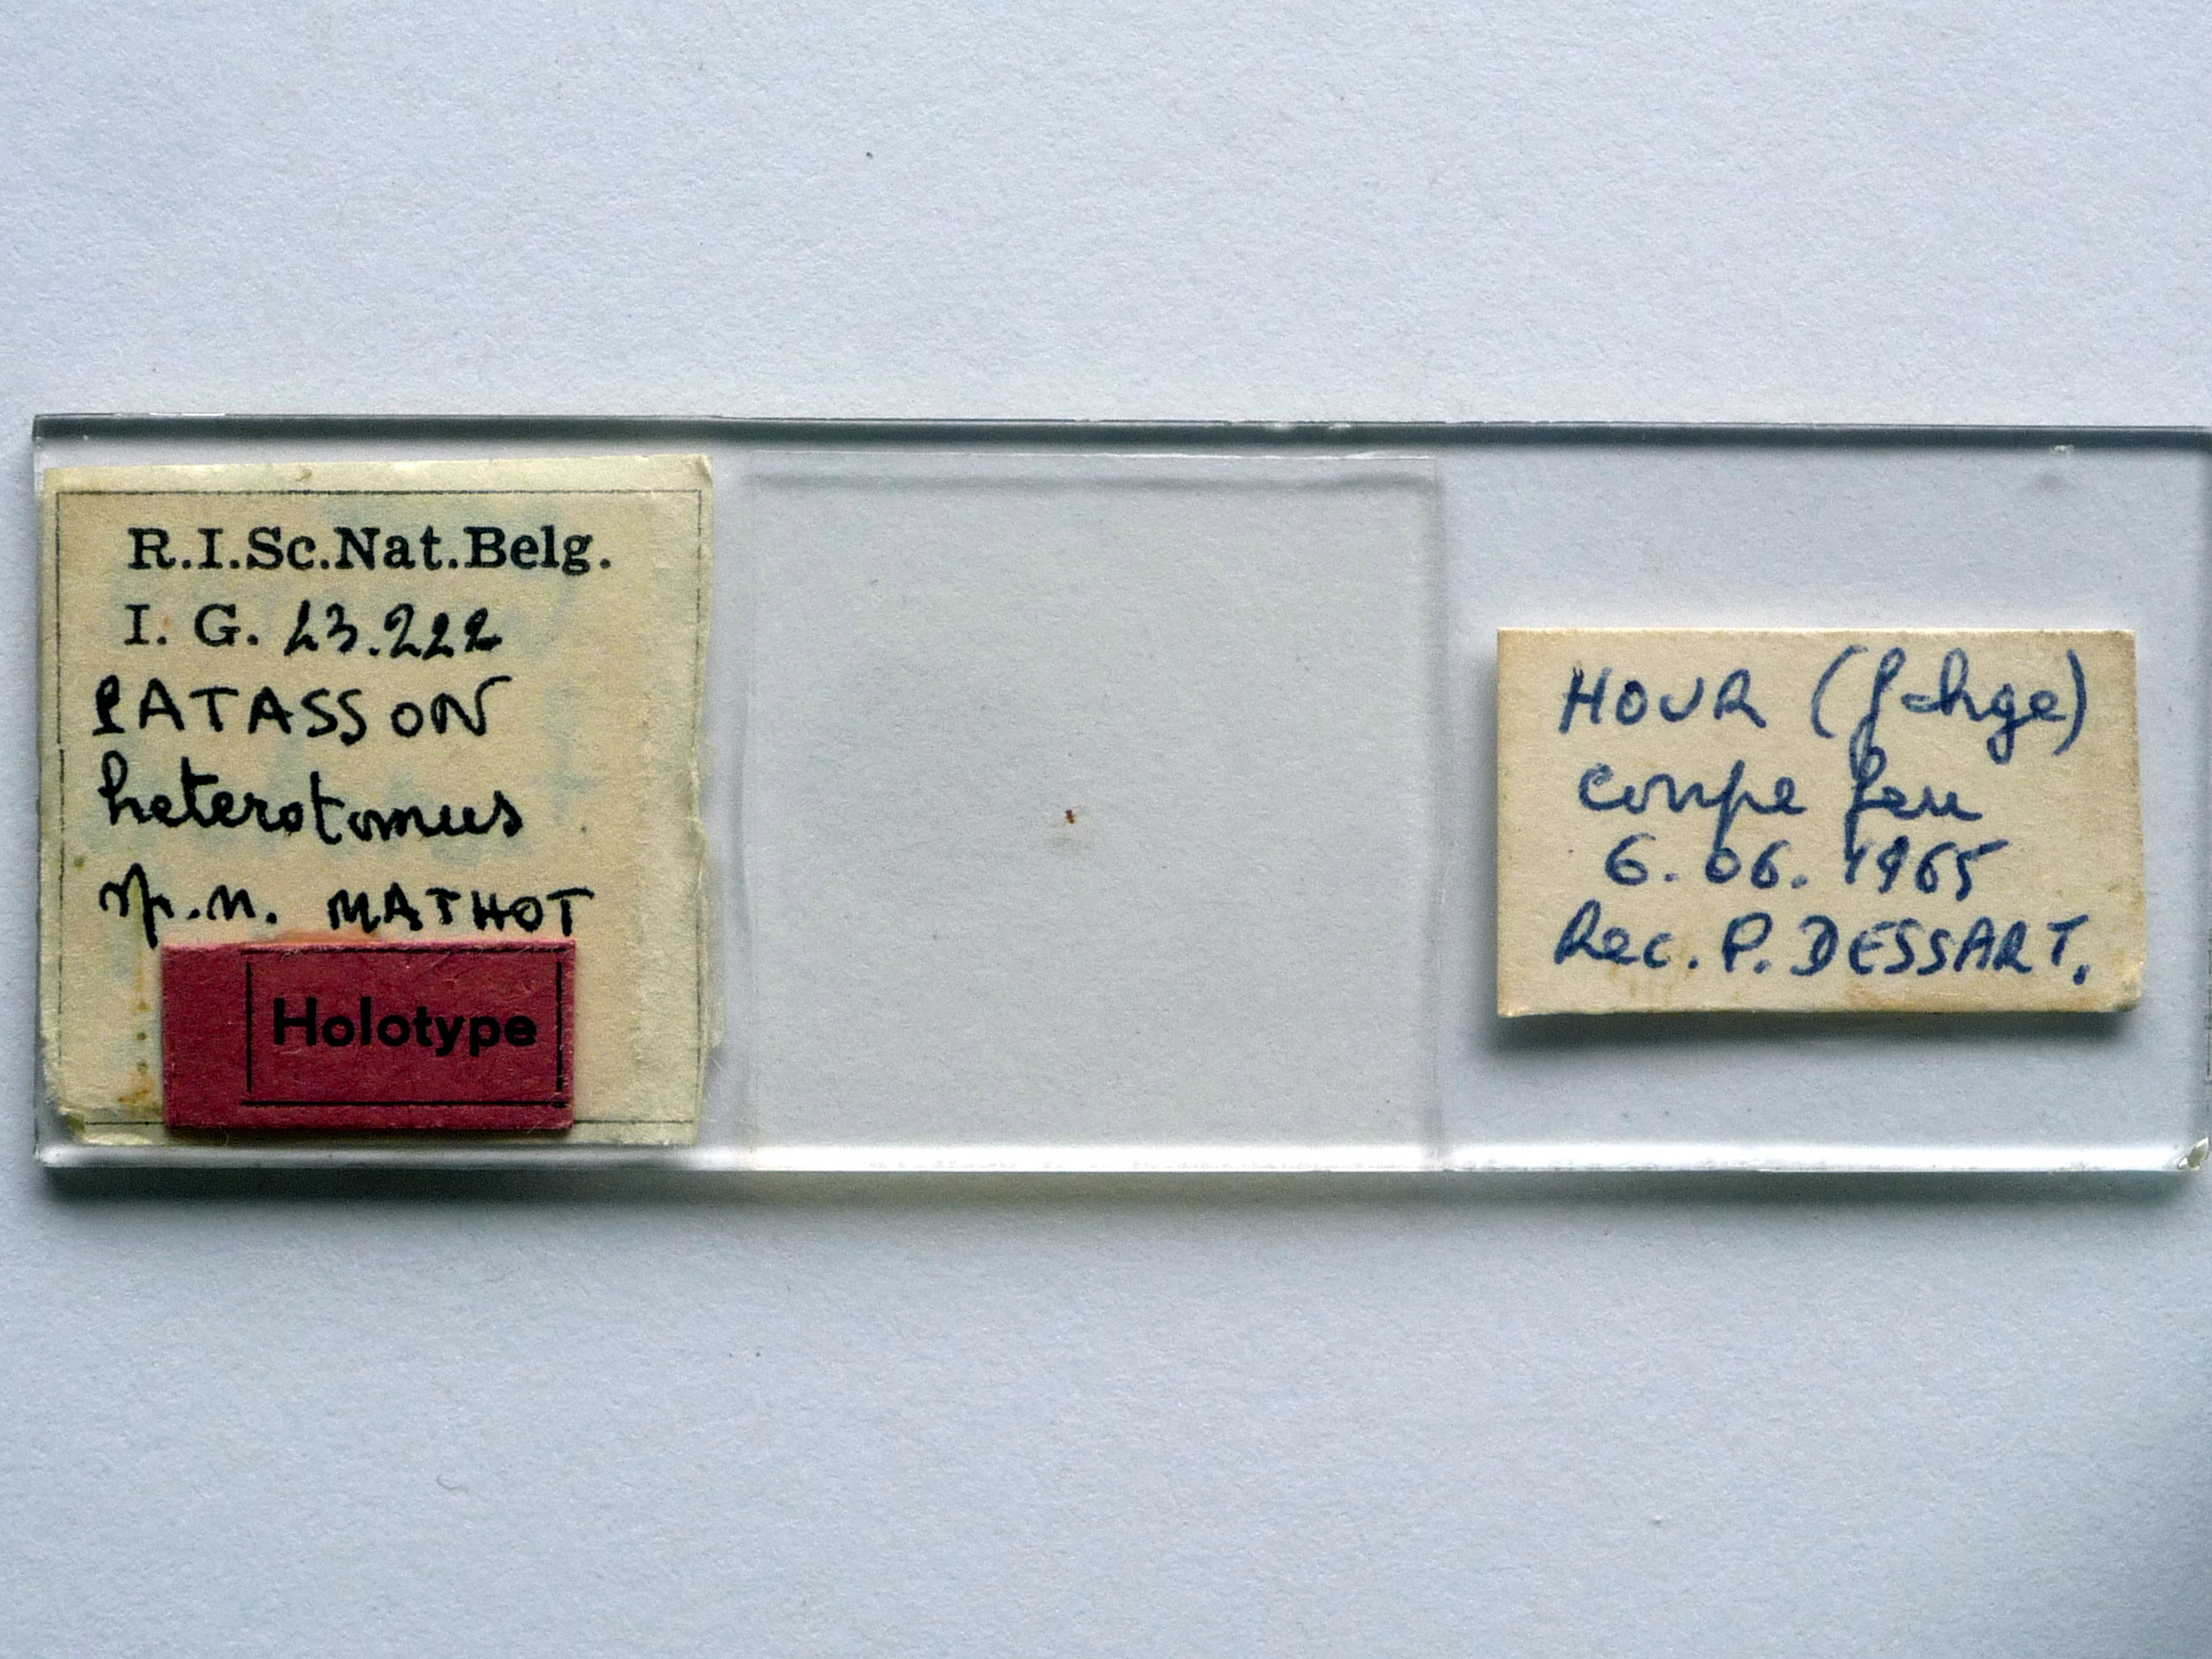 R.I.Sc.Nat.Belg.
I. G. 23.222
PATASSON
heterotomus
sp.n. MATHOT
Holotype
HOUR (f-hge)
coupe feu
6.06.1965
Rec. P. DESSART.